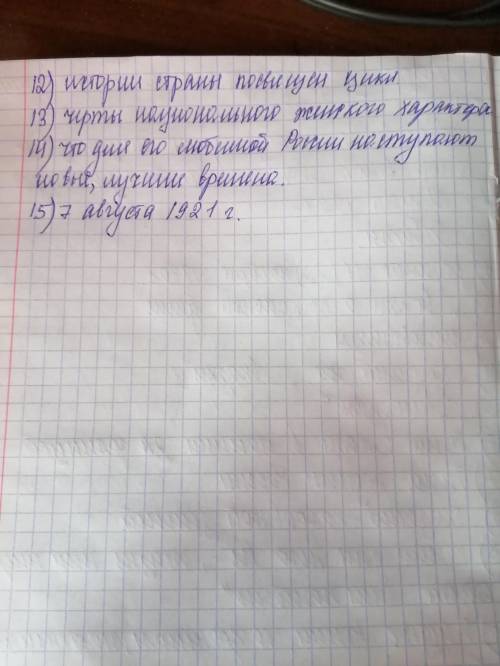 12) истории страны посвящен цикл
13) черты национального женского характера
14) что для его любимой России наступают
новые, лучшие времена.
15) 7 августа 1921 г.